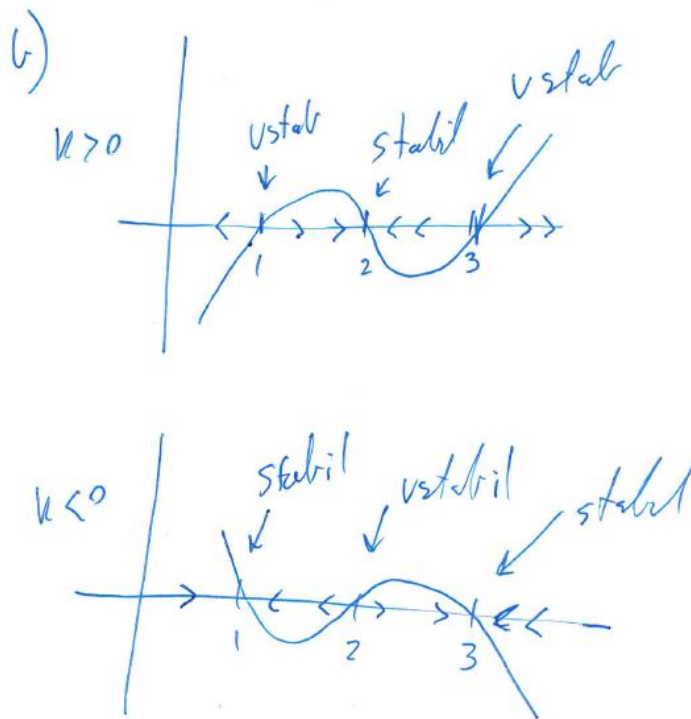 b)
k>0
ustab
stabil
ustab
1 2 3
k<0
stabil
ustabil
stabil
1 2 3